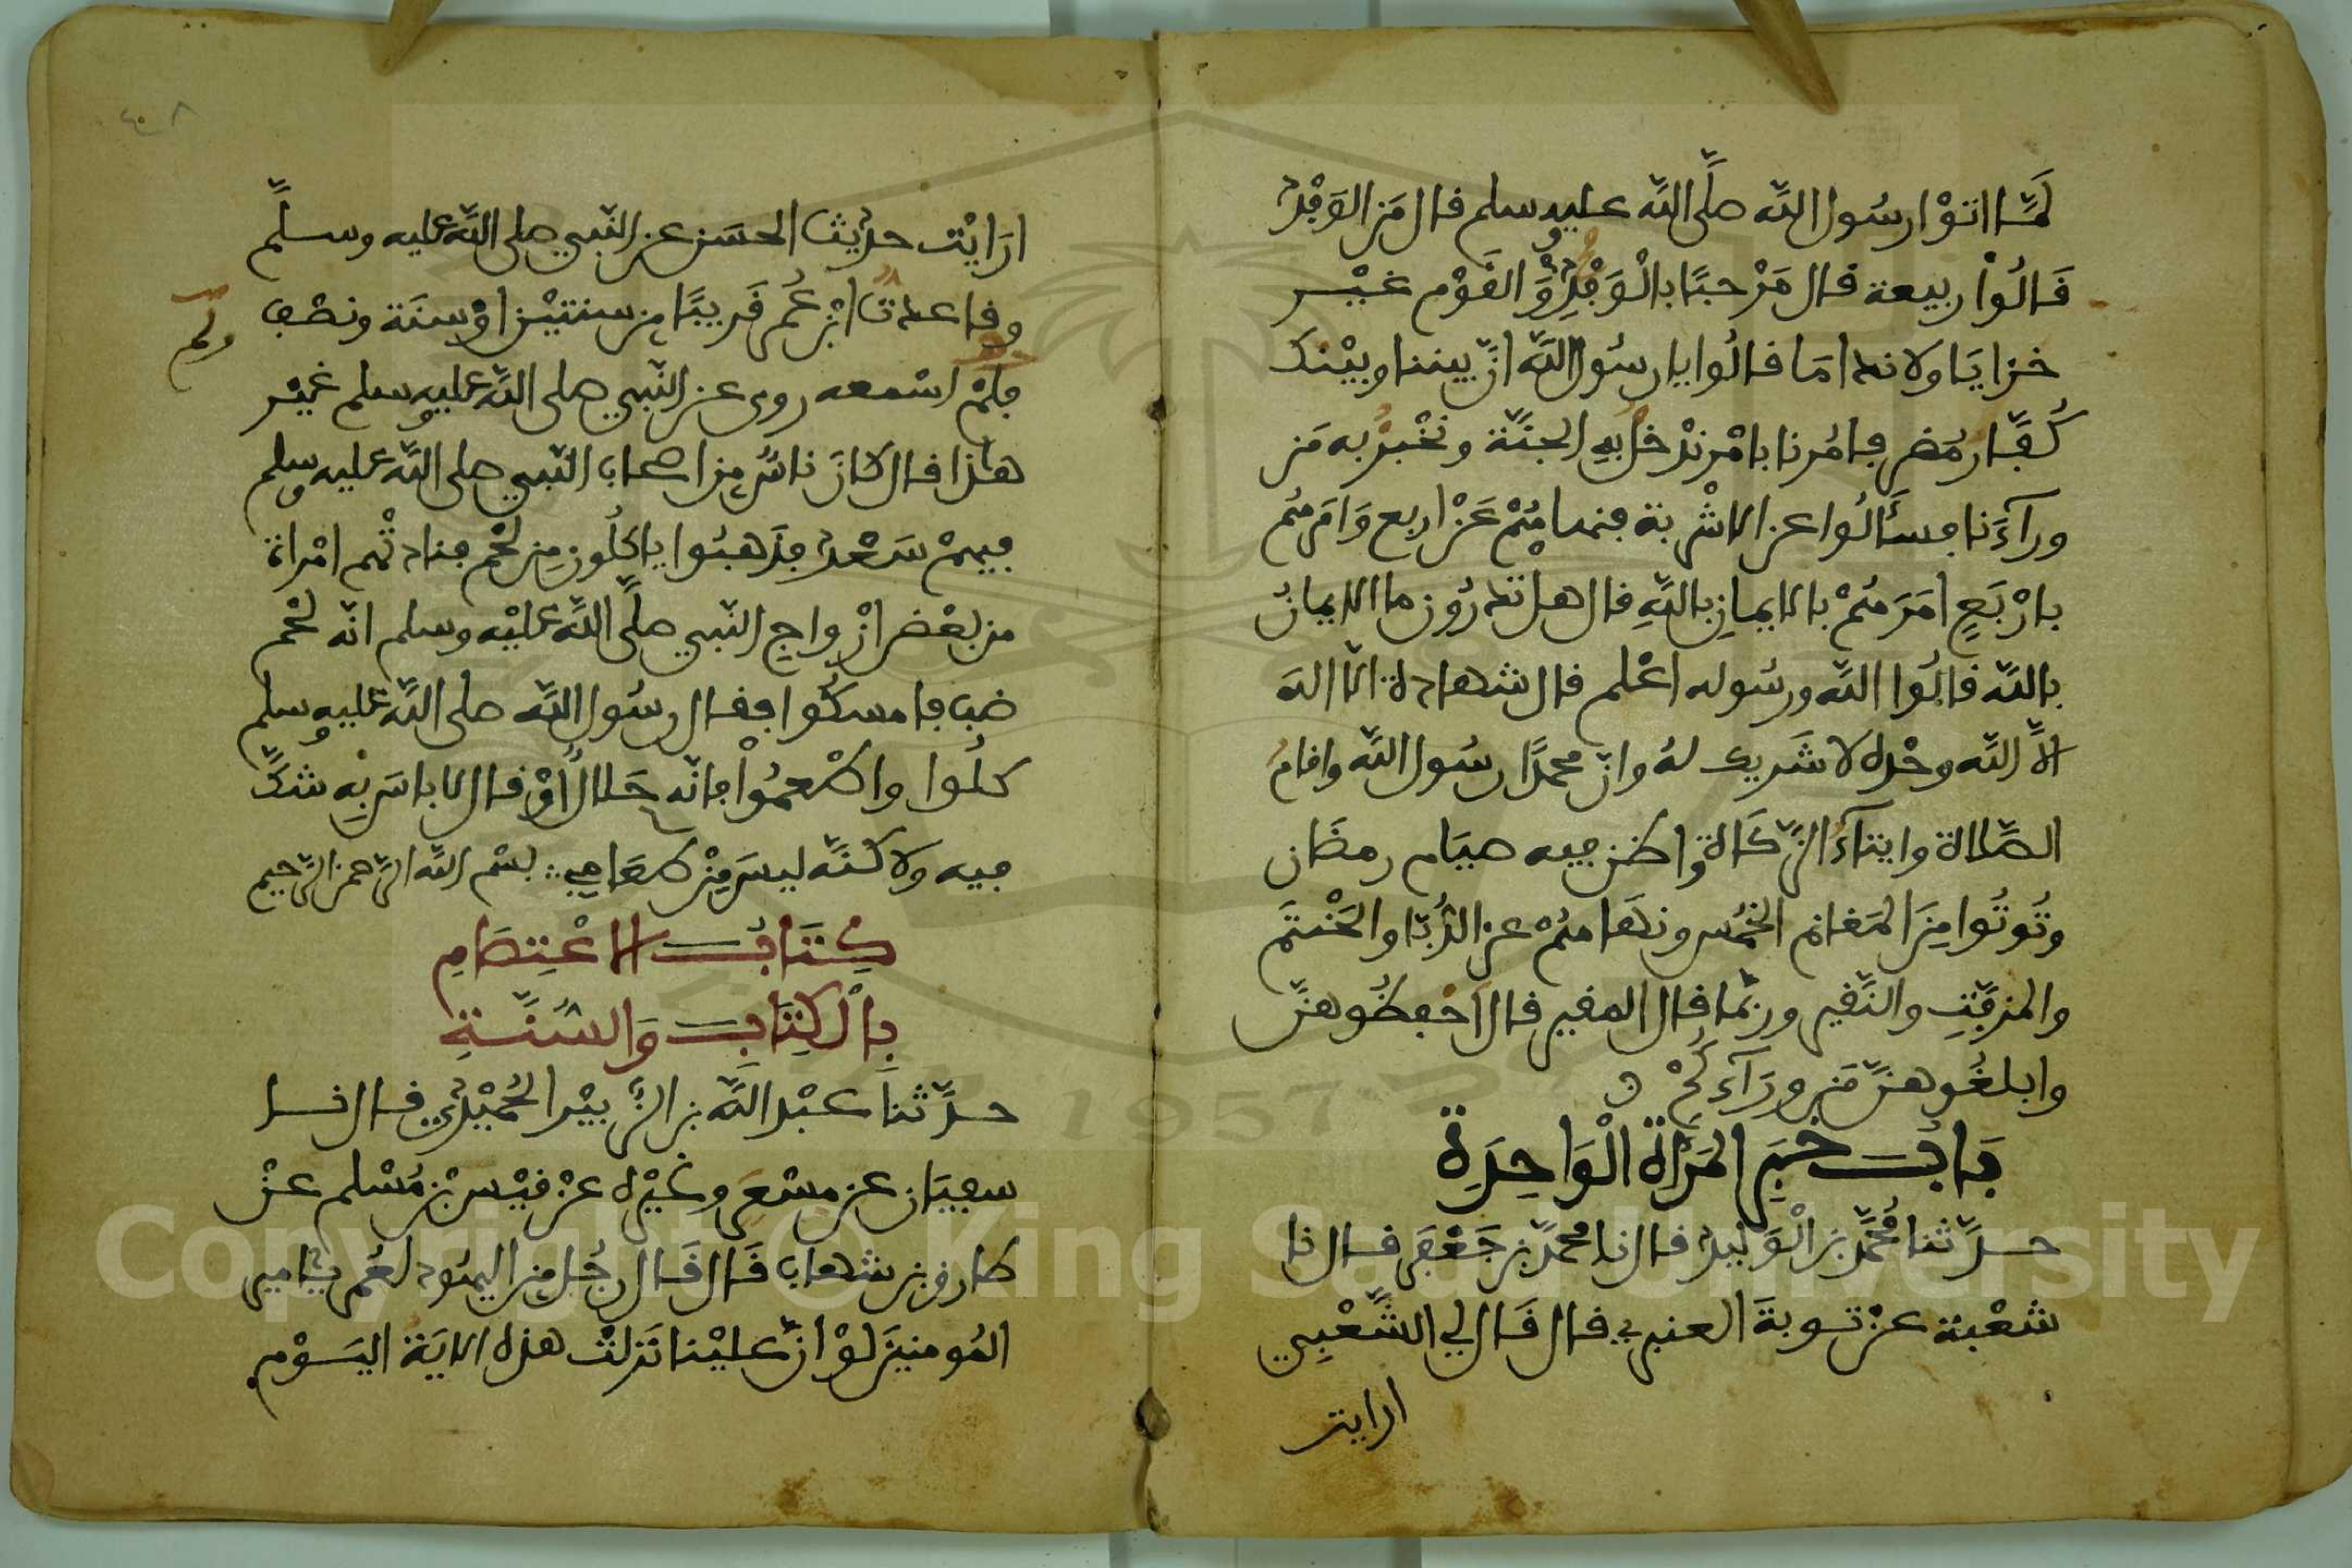 لَمَّا اتوْا رسُول اللَّه صلَّى اللَّه عليه وسلم قال مَن الوَفْدُ
قَالُوْا ربيعة قال مَرْحبًا بالْوَفْدِ وَالقَوْم غيْر
خزايَا ولا ندامَا قالُوا يا رسُول اللَّه انَّ بيننا وبيْنك
كُفَّار مُضر فامُرنا بامْر ندْخُل به الجنَّة ونخْبرُ به مَن
ورآءَنا فسأَلُوا عن الاشْربة فنهاهُمْ عَنْ اربع وَامَرهُم
بارْبَعٍ امَرَهُمْ بالايمانِ باللَّهِ قال هل تدْرُون ما الايمانُ
باللَّه قالُوا اللَّه ورسُوله اعْلم قال شهادة الَّا اله
الَّا اللَّه وحْده لا شَريك لهُ وانّ محمدًا رسُول اللَّه واقامُ
الصَّلاة وايتآءُ الزَّكَاة واظن فيه صيَام رمضان
وتُوتُوا مِنَ المَغانم الخُمُس ونهَاهُمْ عن الدُّبّا والحَنْتَم
والمزفَّتِ والنَّقير وربّما قال المقير قال احْفظُوهنَّ
وابلغُوهنَّ مَن ورَآءكُمْ
بَابُ خبَرِ المَرْأة الْوَاحِدَةِ
حدَّثنا مُحَمَّد بن الْوَليد قال نا محمَّد بن جَعْفَر قال نا
شعْبة عنْ توبةَ العنبري قال قَال لي الشَّعْبِي
ارايت
٤٠٨
ارَايْت حديْث الحسَن عن النَّبي صلى اللَّه عليه وسلَّم
وقاعدتُ ابْن عُمر قَريبًا من سنتيْن اوْ سنَة ونصْف
ولم
فلمْ اسْمعه روى عن النَّبي صلى اللَّه عليه وسلم غيْر
هاذا قال كانَ ناسٌ من اصحاب النَّبي صلى اللَّه عليه وسلم
فيهمْ سَعْد فذَهبُوا ياكلُون مِن لحْم فنادتْهم امْراة
من بعْض ازْواجِ النَّبي صلَّى اللَّه عليْه وسلم انّه لحْم
ضب فامسكُوا فقال رسُول اللَّه صلى اللَّه عليه وسلم
كلُوا واطْعمُوا فانّه حَلالٌ اوْ قال لا باسَ بِه شكَّ
فيه ولاكنَّه ليسَ مِنْ طعَامِي ∴ بسْم اللَّه الرَّحمن الرَّحيم
كِتَابُ الاعْتِصَامِ
بِالْكِتَابِ وَالسُّنَّةِ
حدَّثنا عبْد اللَّه بن الزُّبيْر الحُمَيْدي قال نا
سفيَان عن مسْعَر وغيْره عنْ قيْس بْن مُسْلم عنْ
طارق بن شهاب قَال قَال رجُل مِن اليهُود لعُمر يا امير
المُومنينَ لوْ انَّ عليْنا نَزلتْ هذه الايَة اليَوْم
Copyright © King Saud University
1957